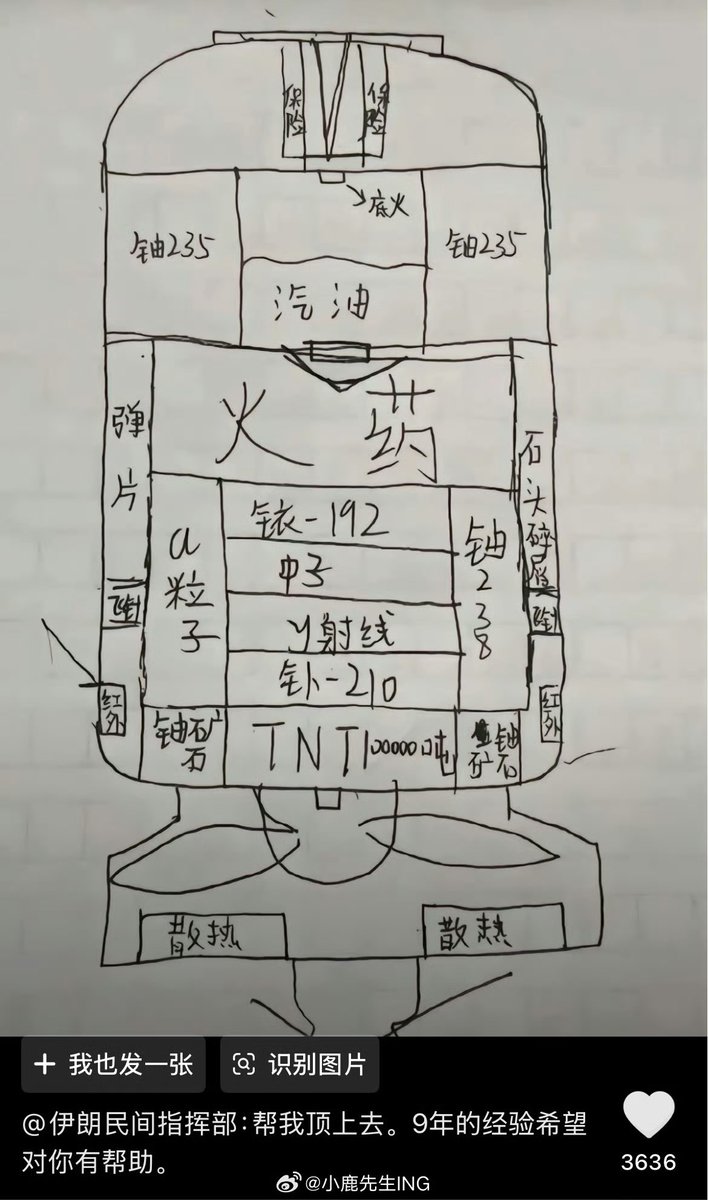 保险
保险
底火
铀235
铀235
汽油
火药
弹片
石头碎屑
a粒子
铱-192
中子
y射线
钋-210
铀238
红外
红外
铀矿石
TNT100000吨
铀矿石
散热
散热
我也发一张
识别图片
@伊朗民间指挥部:帮我顶上去。9年的经验希望
对你有帮助。
3636
@小鹿先生ING